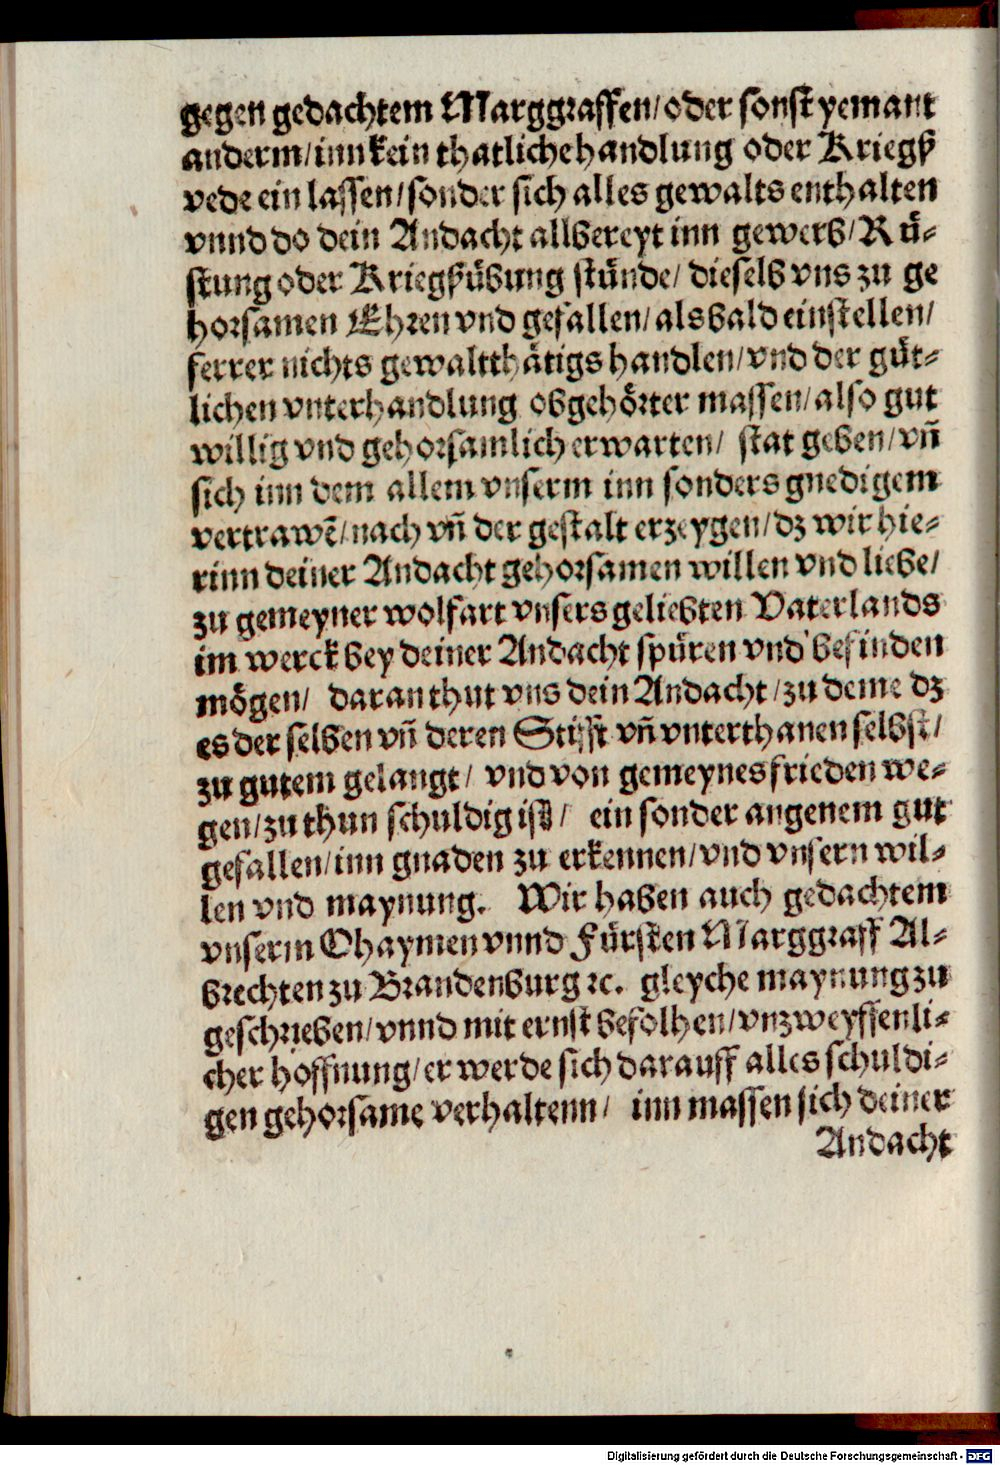 gegen gedachtem Marggraffen/oder sonst yemant
anderm/inn kein thatliche handlung oder Kriegß
vede ein lassen/sonder sich alles gewalts enthalten
vnnd do dein Andacht allbereyt inn gewerb/Rü-
stung oder Kriegßübung stünde/ dieselb vns zu ge
horsamen Ehren vnd gefallen/als bald einstellen/
ferrer nichts gewaltthätigs handlen/vnd der güt-
lichen vnterhandlung obgehörter massen/also gut
willig vnd gehorsamlich erwarten/ stat geben/vñ
sich inn dem allem vnserm inn sonders gnedigem
vertrawẽ/nach vñ der gestalt erzeygen/dz wir hie-
rinn deiner Andacht gehorsamen willen vnd liebe/
zu gemeyner wolfart vnsers geliebten Vaterlands
im werck bey deiner Andacht spüren vnd befinden
mögen/ daran thut vns dein Andacht/zu deme dz
es der selben vñ deren Stifft vñ vnterthanen selbst/
zu gutem gelangt/ vnd von gemeynes frieden we-
gen/zu thun schuldig ist/ ein sonder angenem gut
gefallen/inn gnaden zu erkennen/vnd vnsern wil-
len vnd maynung. Wir haben auch gedachtem
vnserm Ohaymen vnnd Fürsten Marggraff Al-
brechten zu Brandenburg ꝛc. gleyche maynung zu
geschrieben/vnnd mit ernst befolhen/vnzweyffenli-
cher hoffnung/er werde sich darauff alles schuldi-
gen gehorsame verhaltenn/ inn massen sich deiner
Andacht
Digitalisierung gefördert durch die Deutsche Forschungsgemeinschaft - DFG